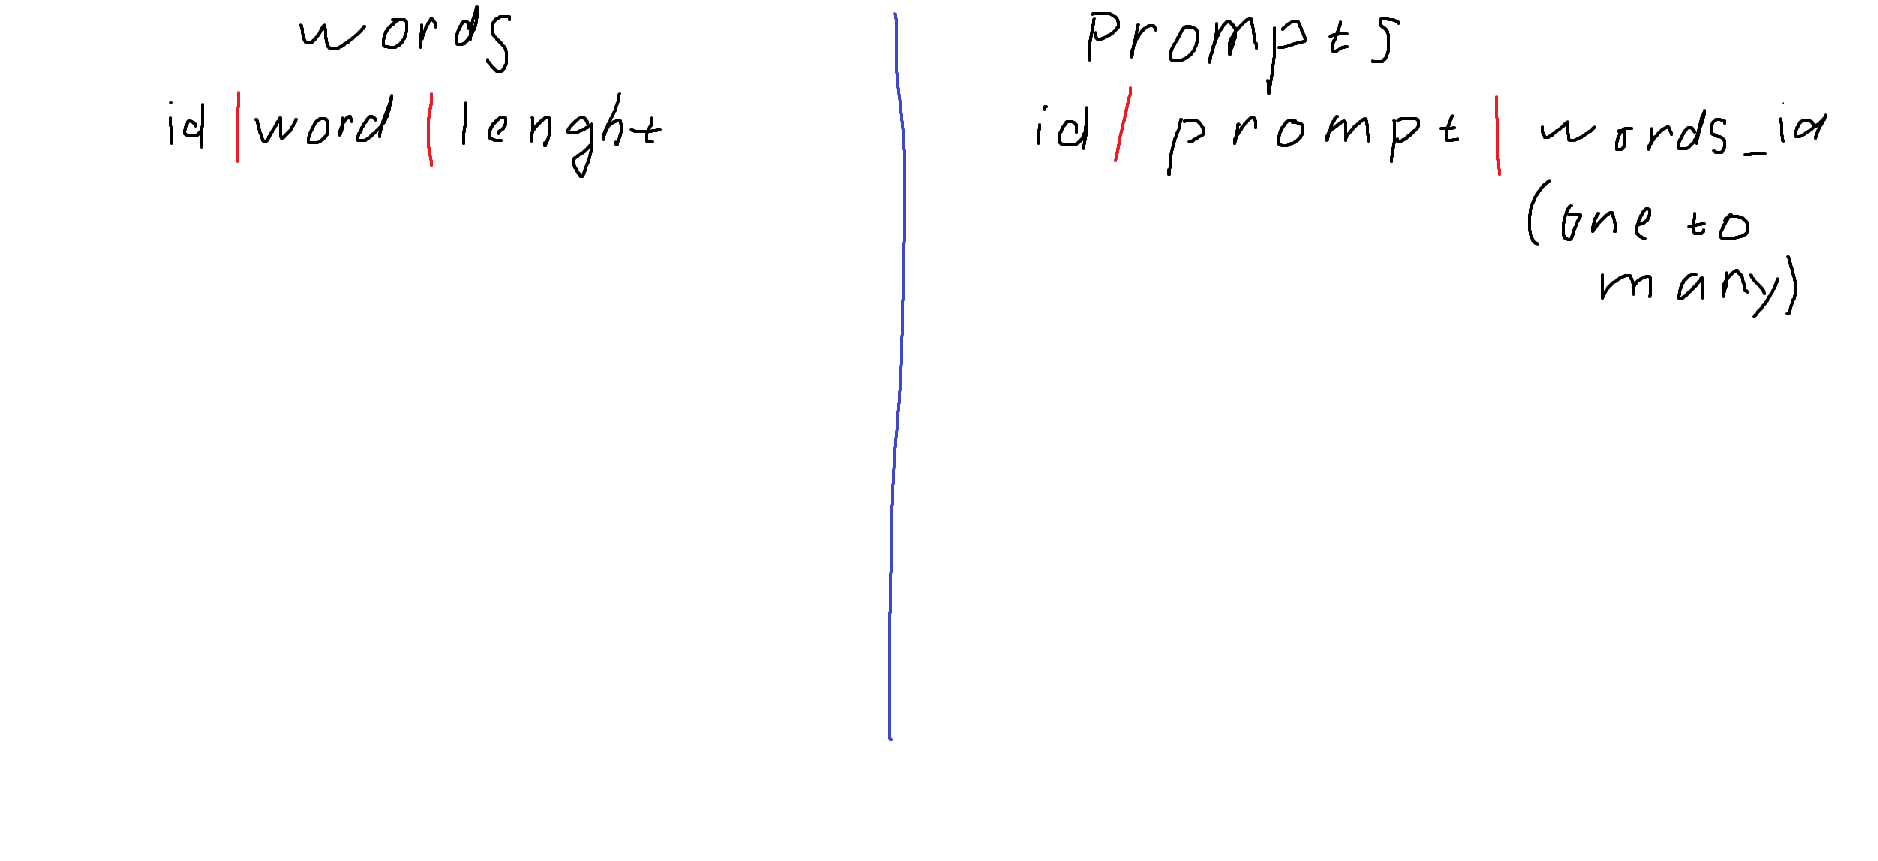 words
id | word | lenght
Prompts
id / prompt | words_id
(one to
many)